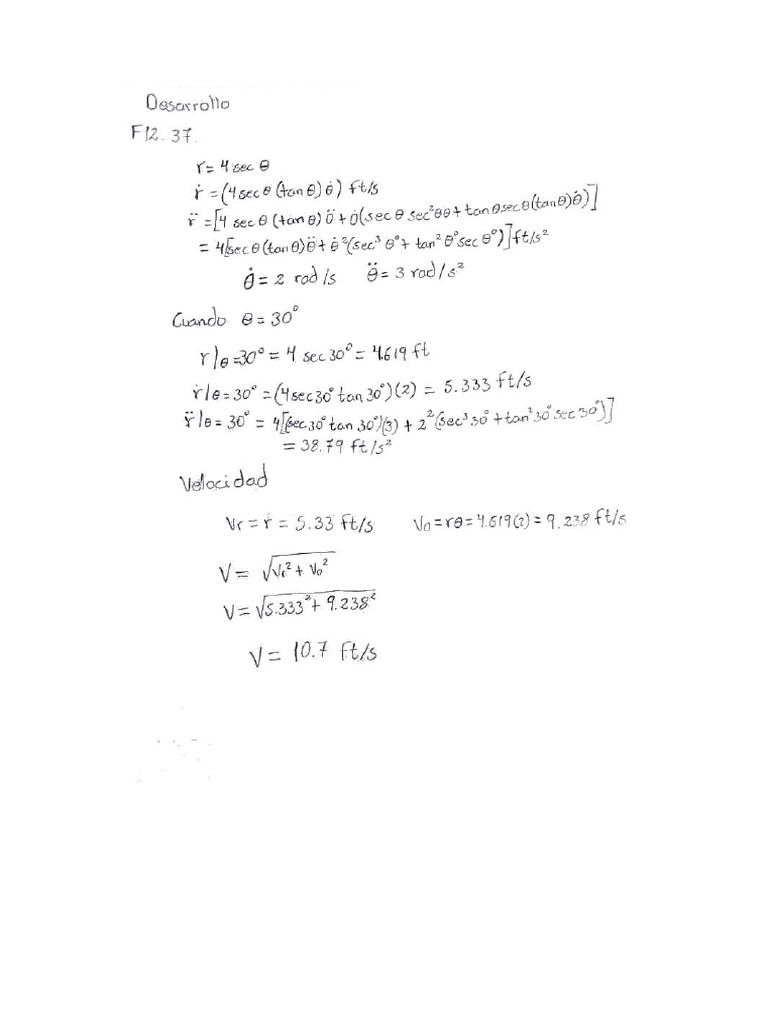 Desarrollo
F12.37.
r = 4 sec θ
ṙ = (4 sec θ (tan θ) θ̇) ft/s
r̈ = [4 sec θ (tan θ) θ̈ + θ̇ (sec θ sec²θθ + tan θ sec θ (tan θ) θ̇)]
= 4[sec θ (tan θ) θ̈ + θ̇² (sec³ θ° + tan² θ° sec θ°)] ft/s²
θ̇ = 2 rad/s θ̈ = 3 rad/s²
Cuando θ = 30°
r|θ=30° = 4 sec 30° = 4.619 ft
ṙ|θ=30° = (4 sec 30° tan 30°)(2) = 5.333 ft/s
r̈|θ=30° = 4[(sec 30° tan 30°)(3) + 2² (sec³ 30° + tan² 30° sec 30°)]
= 38.79 ft/s²
Velocidad
Vr = ṙ = 5.33 ft/s Vθ = rθ = 4.619(2) = 9.238 ft/s
V = √Vr² + Vθ²
V = √5.333² + 9.238²
V = 10.7 ft/s